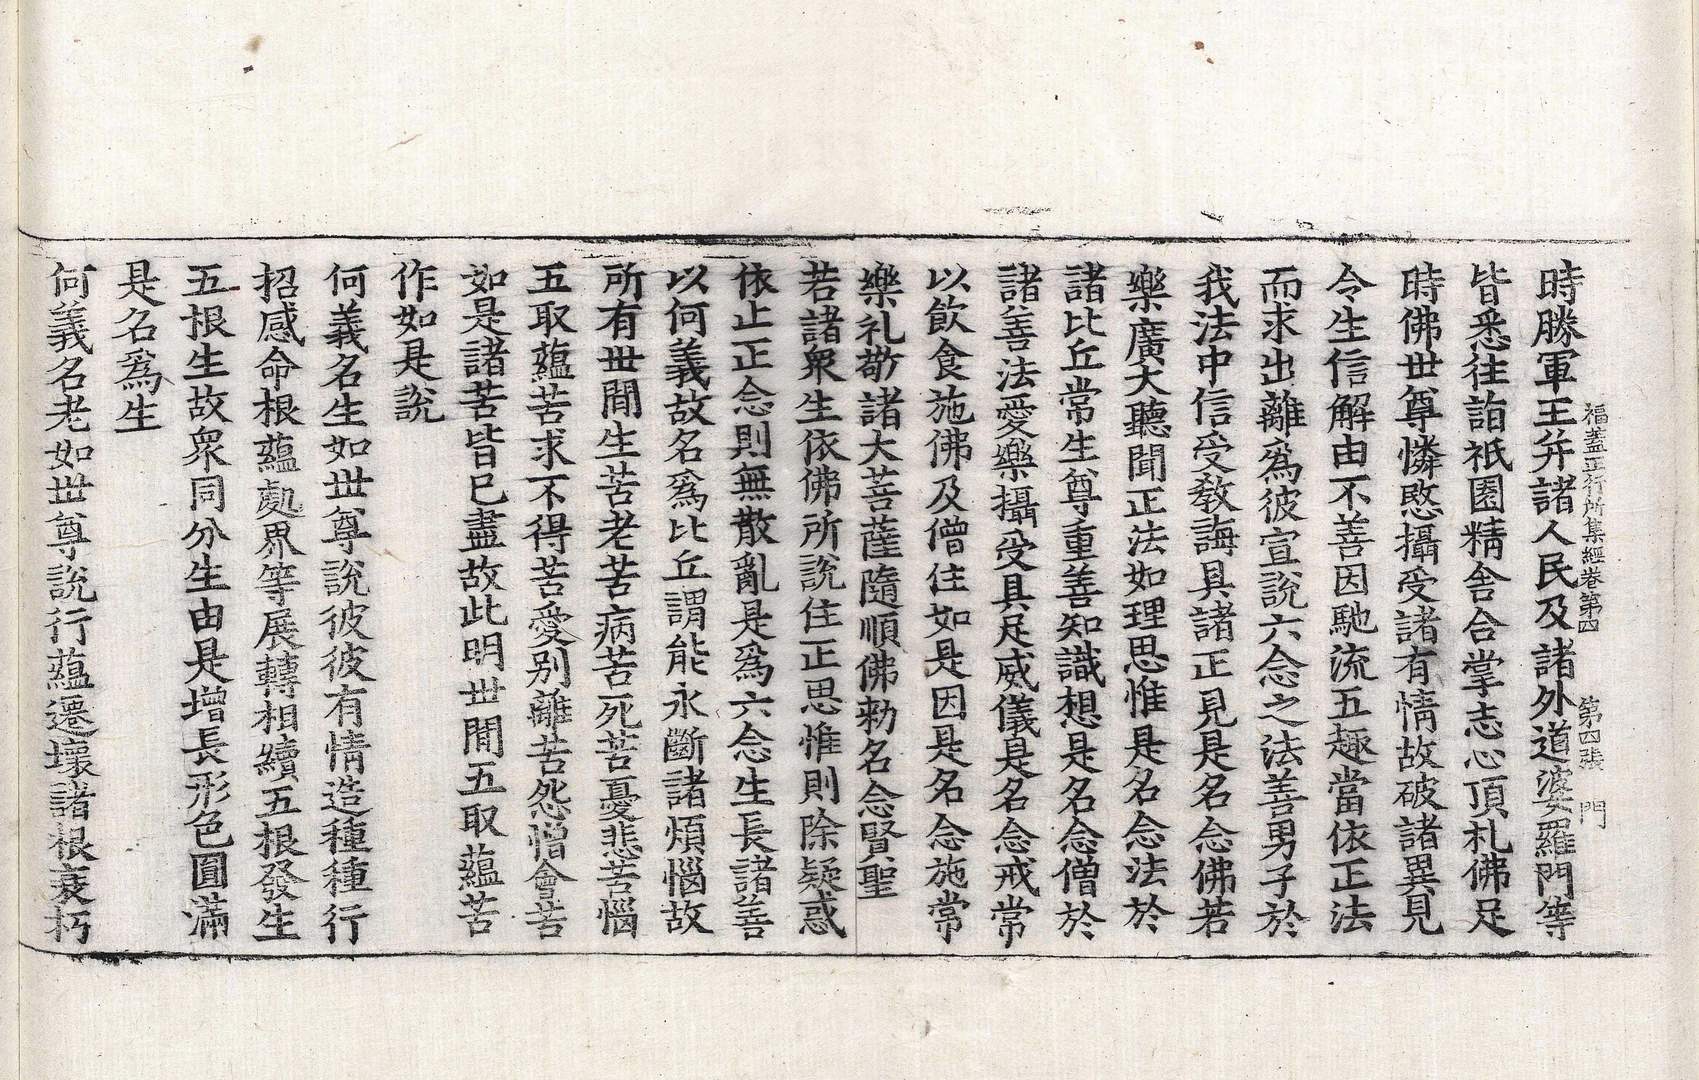 福蓋正行所集經卷第四　第四張　門
時勝軍王并諸人民及諸外道婆羅門等
皆悉往詣祇園精舍合掌志心頂礼佛足
時佛世尊憐愍攝受諸有情故破諸異見
令生信解由不善因馳流五趣當依正法
而求出離爲彼宣說六念之法善男子於
我法中信受教誨具諸正見是名念佛若
樂廣大聽聞正法如理思惟是名念法於
諸比丘常生尊重善知識想是名念僧於
諸善法愛樂攝受具足威儀是名念戒常
以飲食施佛及僧住如是因是名念施常
樂礼敬諸大菩薩隨順佛勑名念賢聖
若諸衆生依佛所說住正思惟則除疑惑
依止正念則無散亂是爲六念生長諸善
以何義故名爲比丘謂能永斷諸煩惱故
所有世間生苦老苦病苦死苦憂悲苦惱
五取蘊苦求不得苦愛別離苦怨憎會苦
如是諸苦皆已盡故此明世間五取蘊苦
作如是說
何義名生如世尊說彼彼有情造種種行
招感命根蘊處界等展轉相續五根發生
五根生故衆同分生由是增長形色圓滿
是名爲生
何義名老如世尊說行蘊遷壞諸根衰朽